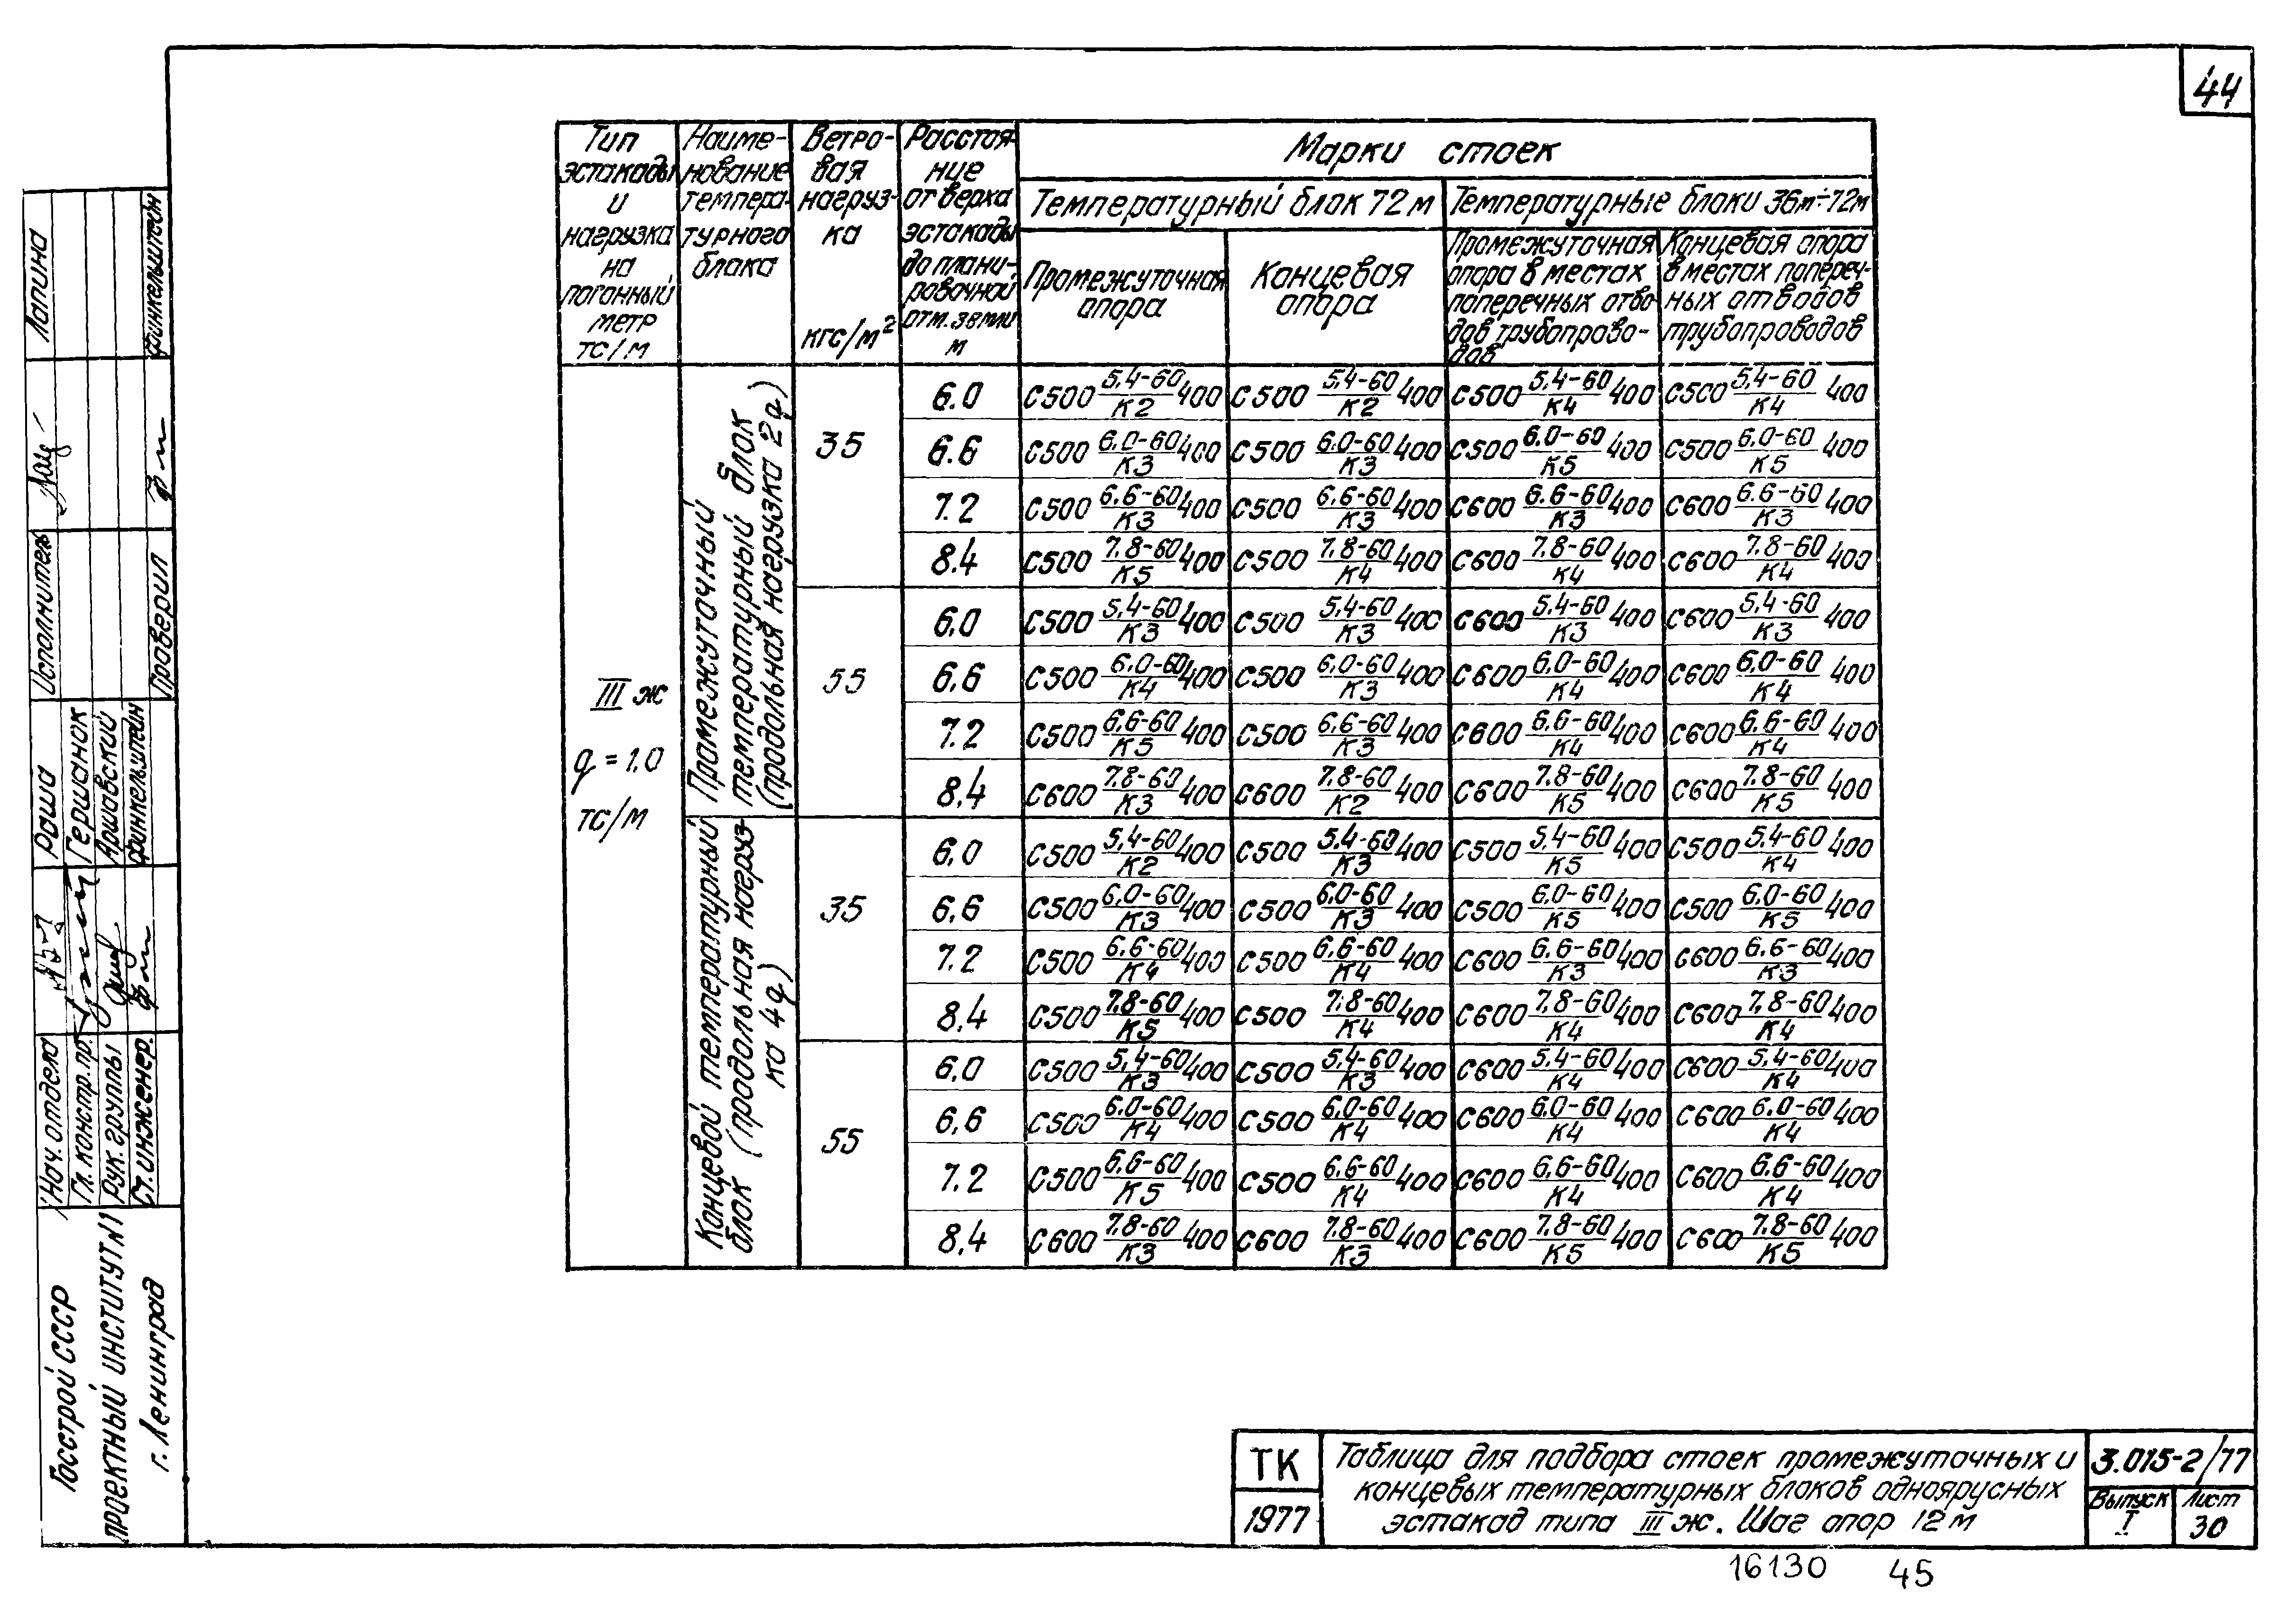 44
Тип эстакады и нагрузка на погонный метр тс/м
Наиме-нование темпера-турного блока
Ветро-вая нагруз-ка кгс/м²
Расстоя-ние от верха эстакады до плани-ровочной отм. земли м
Марки стоек
Температурный блок 72 м
Температурные блоки 36м÷72м
Промежуточная опора
Концевая опора
Промежуточная опора в местах поперечных отво-дов трубопрово-дов
Концевая опора в местах попереч-ных отводов трубопроводов
III ж
q = 1.0
тс/м
Промежуточный температурный блок (продольная нагрузка 2q)
35
6.0 С500 5,4-60/К2 400 С500 5,4-60/К2 400 С500 5,4-60/К4 400 С500 5,4-60/К4 400
6.6 С500 6.0-60/К3 400 С500 6.0-60/К3 400 С500 6.0-60/К5 400 С500 6.0-60/К5 400
7.2 С500 6.6-60/К3 400 С500 6.6-60/К3 400 С600 6.6-60/К3 400 С600 6.6-60/К3 400
8.4 С500 7.8-60/К5 400 С500 7.8-60/К4 400 С600 7.8-60/К4 400 С600 7.8-60/К4 400
55
6.0 С500 5,4-60/К3 400 С500 5,4-60/К3 400 С600 5,4-60/К3 400 С600 5,4-60/К3 400
6.6 С500 6.0-60/К4 400 С500 6.0-60/К3 400 С600 6.0-60/К4 400 С600 6.0-60/К4 400
7.2 С500 6.6-60/К5 400 С500 6.6-60/К3 400 С600 6.6-60/К4 400 С600 6.6-60/К4 400
8.4 С600 7.8-60/К3 400 С600 7.8-60/К2 400 С600 7.8-60/К5 400 С600 7.8-60/К5 400
Концевой температурный блок (продольная нагруз-ка 4q)
35
6.0 С500 5,4-60/К2 400 С500 5,4-60/К3 400 С500 5,4-60/К5 400 С500 5,4-60/К4 400
6.6 С500 6.0-60/К3 400 С500 6.0-60/К3 400 С500 6.0-60/К5 400 С500 6.0-60/К5 400
7.2 С500 6.6-60/К4 400 С500 6.6-60/К4 400 С600 6.6-60/К3 400 С600 6.6-60/К3 400
8.4 С500 7.8-60/К5 400 С500 7.8-60/К4 400 С600 7.8-60/К4 400 С600 7.8-60/К4 400
55
6.0 С500 5,4-60/К3 400 С500 5,4-60/К3 400 С600 5,4-60/К4 400 С600 5,4-60/К4 400
6.6 С500 6.0-60/К4 400 С500 6.0-60/К4 400 С600 6.0-60/К4 400 С600 6.0-60/К4 400
7.2 С500 6.6-60/К5 400 С500 6.6-60/К4 400 С600 6.6-60/К4 400 С600 6.6-60/К4 400
8.4 С600 7.8-60/К3 400 С600 7.8-60/К3 400 С600 7.8-60/К5 400 С600 7.8-60/К5 400
Госстрой СССР
Проектный институт №1
г. Ленинград
Нач. отдела Раша Исполнитель Лапина
Гл. констр. пр. Гершанок
Рук. группы Аршавский
Ст. инженер. Финкельштейн Проверил Финкельштейн
ТК
1977
Таблица для подбора стоек промежуточных и
концевых температурных блоков одноярусных
эстакад типа III ж. Шаг опор 12 м
3.015-2/77
Выпуск I
Лист 30
16130 45